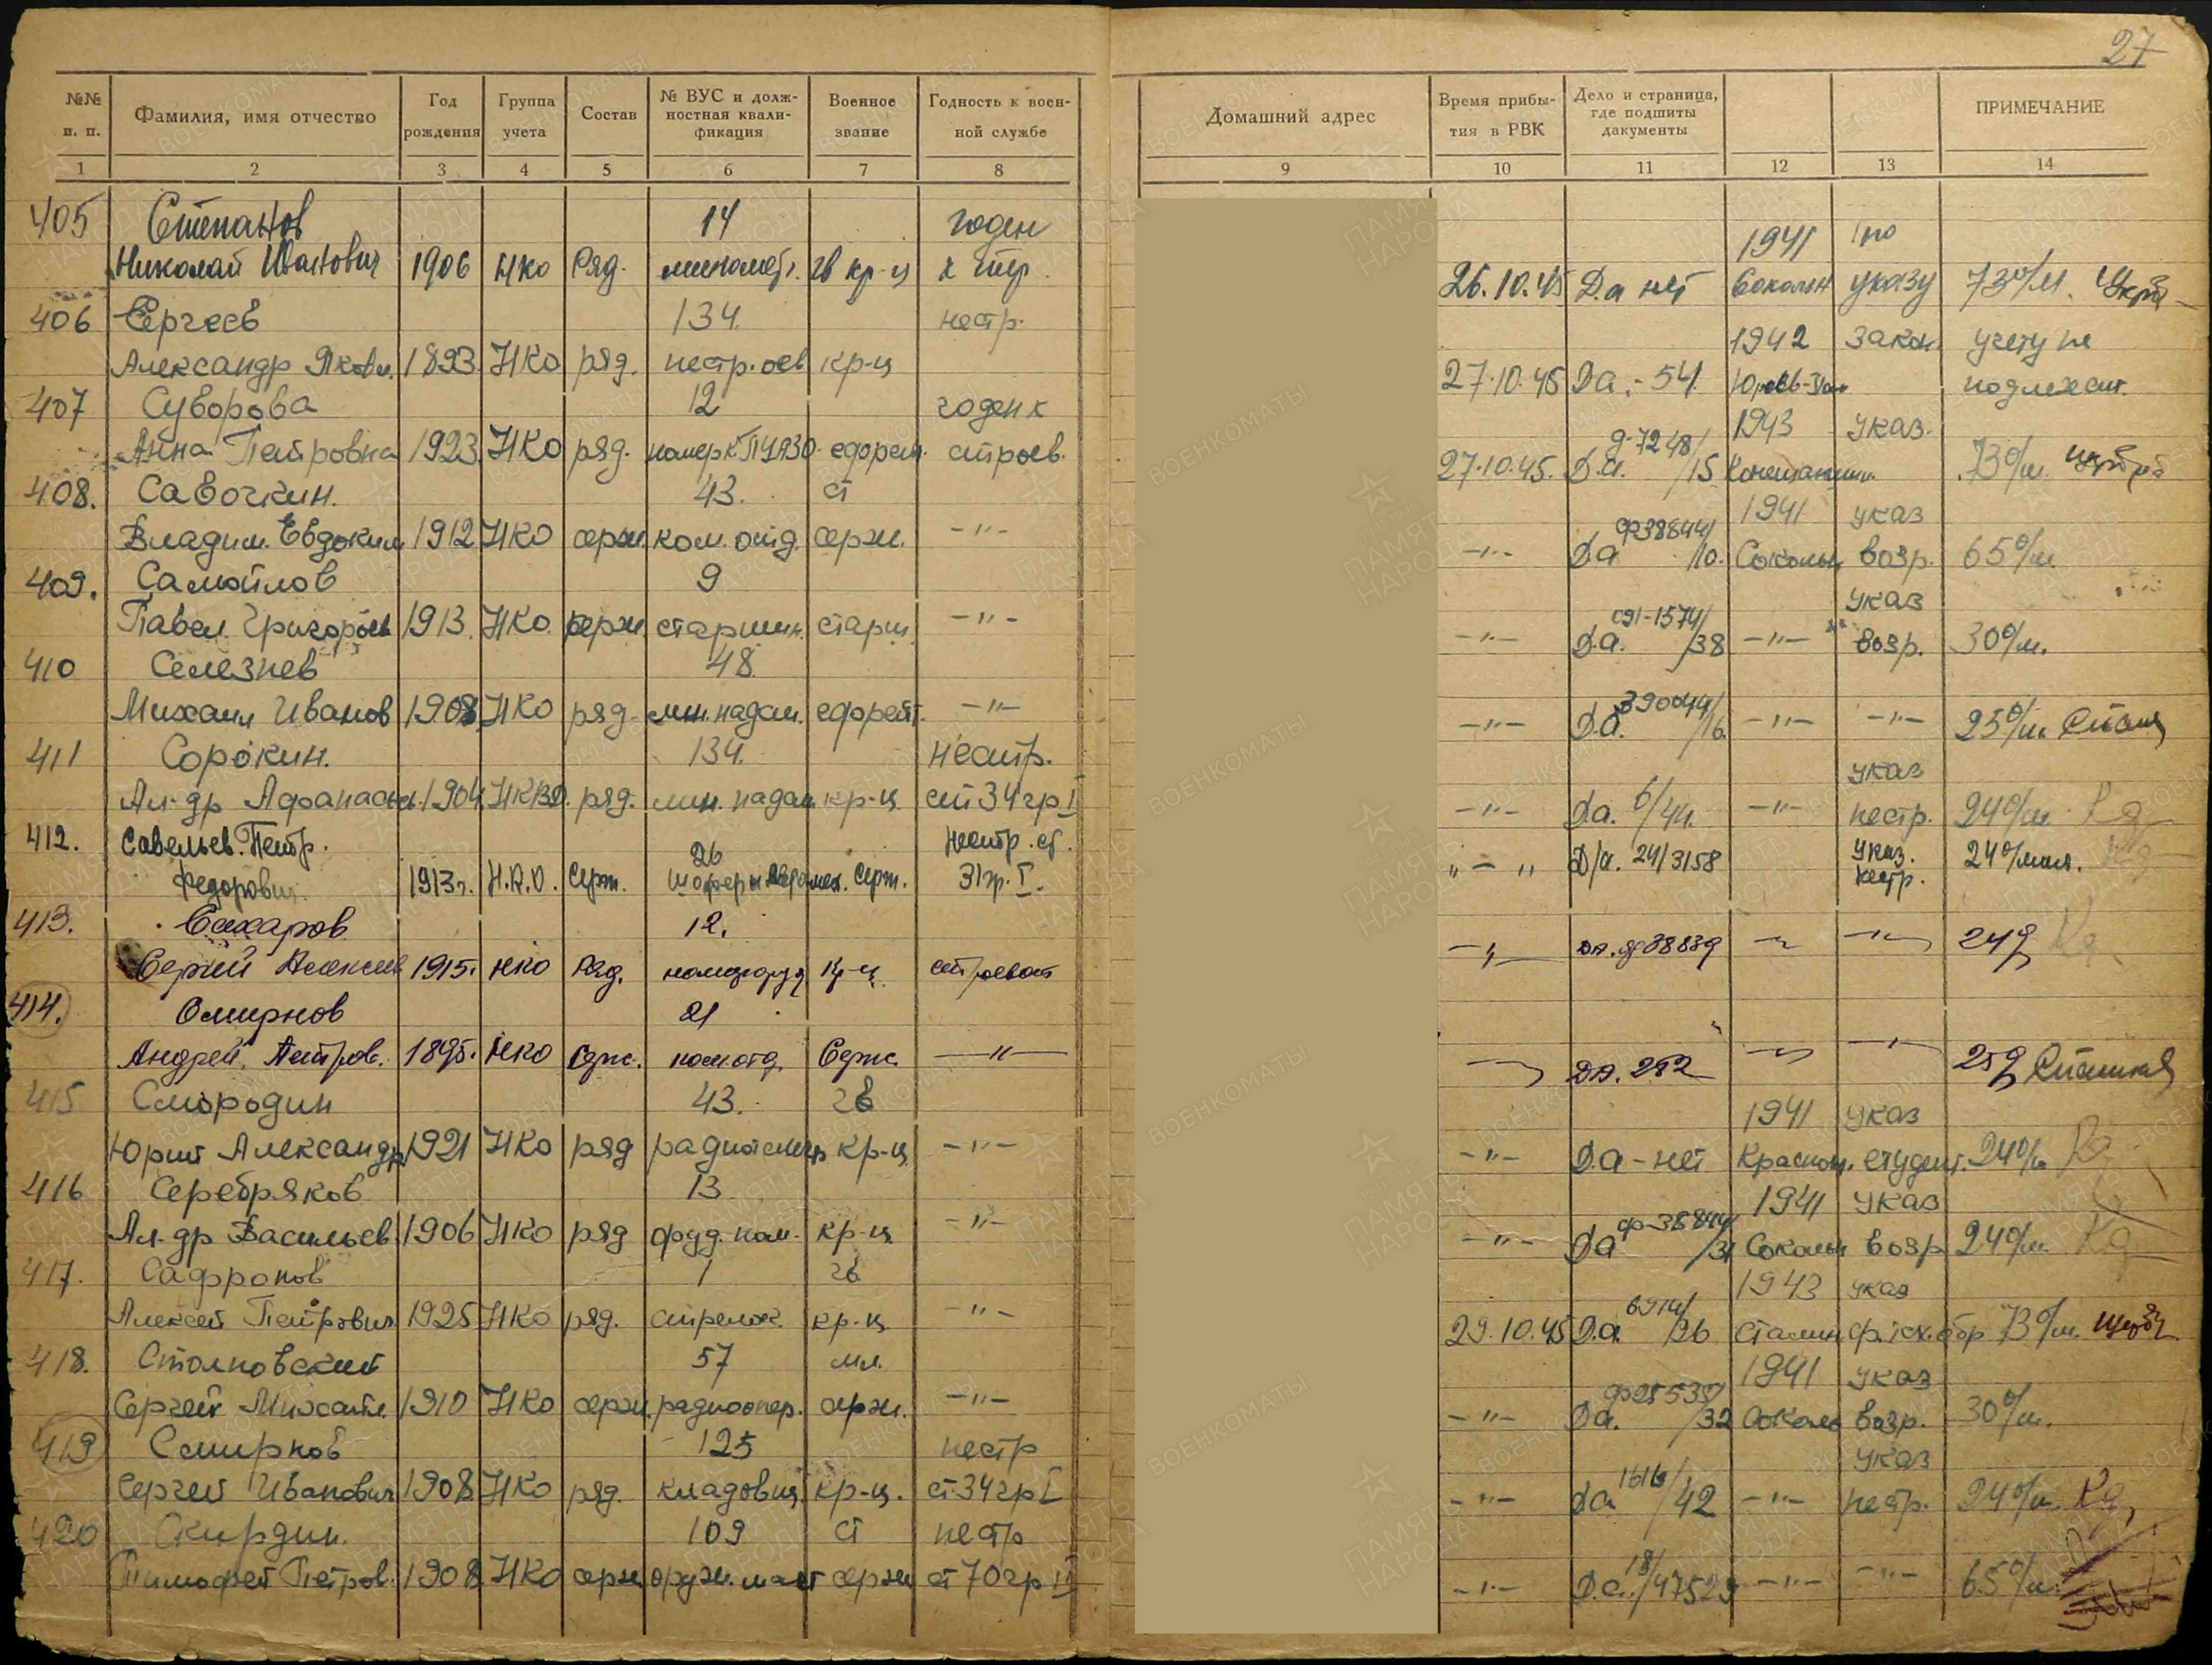 27
№№ п. п. Фамилия, имя отчество Год рождения Группа учета Состав № ВУС и долж-ностная квали-фикация Военное звание Годность к воен-ной службе Домашний адрес Время прибы-тия в РВК Дело и страница, где подшиты дакументы ПРИМЕЧАНИЕ
1 2 3 4 5 6 7 8 9 10 11 12 13 14
405 Степанов 14 годен 1941 по
Николай Иванович 1906 НКО Ряд. миномет. гв кр-ц к стр. 26.10.45 Д.а нет Сокольн указу 73 о/м.
406 Сергеев 134 нестр. 1942 закон. учету не
Александр Яковл. 1893 НКО ряд. нестроев кр-ц 27.10.45 Да - 54. подлежит.
407 Суворова 12 годен к 1943 указ.
Анна Петровна 1923 НКО ряд. номер к. ПУАЗО. ефрейт. строев. 27.10.45. Д.а. д-7248/15 73 о/м.
408. Савочкин. 43. ст 1941 указ
Владим. Евдоким 1912 НКО серж. ком. отд. серж. -"- -"- Да ф38844/10. Сокольн возр. 65 о/м.
409. Самойлов 9 указ
Павел Григорьев 1913. НКО. серж. старшин. старш. -"- -"- Д.а. с91-1574/38 -"- возр. 30 о/м.
410 Селезнев 48
Михаил Иванов 1908 НКО ряд. мин. надзм. ефрейт. -"- -"- Д.а. 39044/16. -"- -"- 25 о/м.
411 Сорокин. 134. нестр. указ
Ал-др Афанасьев. 1904 НКВД. ряд. кр-ц. ст 34 гр I -"- Д.а. 6/44. -"- нестр. 24 о/м. Кд
412. Савельев. Петр. 26 нестр. ст. указ.
Федорович 1913г. Н.К.О. Серж. Шоферы Авто мех. Серж. 31 гр. I. "-" Д/а. 24/3158 нестр. 24 о/мил. Кд
413. Сахаров 12.
Сергей Алексеев 1915. НКО Ряд. кр-ц. строевой -"- ДА. ф38839 -"- -"- 24 Кд
414. Смирнов 21
Андрей Петров. 1895. НКО Серж. помотд. Серж. -"- ДА. 252 -"- -"- 25
415 Смородин 43. гв 1941 указ
Юрий Александр 1921 НКО ряд кр-ц -"- -"- Д.а - нет Красноп. студент. 24 о/м. Кд
416 Серебряков 13 1941 указ
Ал-др Васильев. 1906 НКО ряд оруд. ном. кр-ц -"- -"- Да ф-38844/31 Сокольн возр 24 о/м. Кд
417. Сафронов 1 гв 1943 указ
Алексей Петрович 1925 НКО ряд. стрелок. кр-ц -"- 29.10.45 Д.а. 6914/26 73 о/м.
418. Столповский 57 мл. 1941 указ
Сергей Михайл. 1910 НКО серж. радиоопер. серж. -"- -"- Да. ф25535/32 Соколь возр. 30 о/м.
419 Смирнов 125 нестр указ
Сергей Иванович 1908 НКО ряд. кладовщ. кр-ц. ст 34 гр I -"- Да 1616/42 -"- нестр. 24 о/м. Кд
420 Скирдин. 109 ст нестр
Тимофей Петров. 1908 НКО серж оруж. маст серж ст 70 гр II -"- Д.а. 18/47529 -"- -"- 65 о/м.